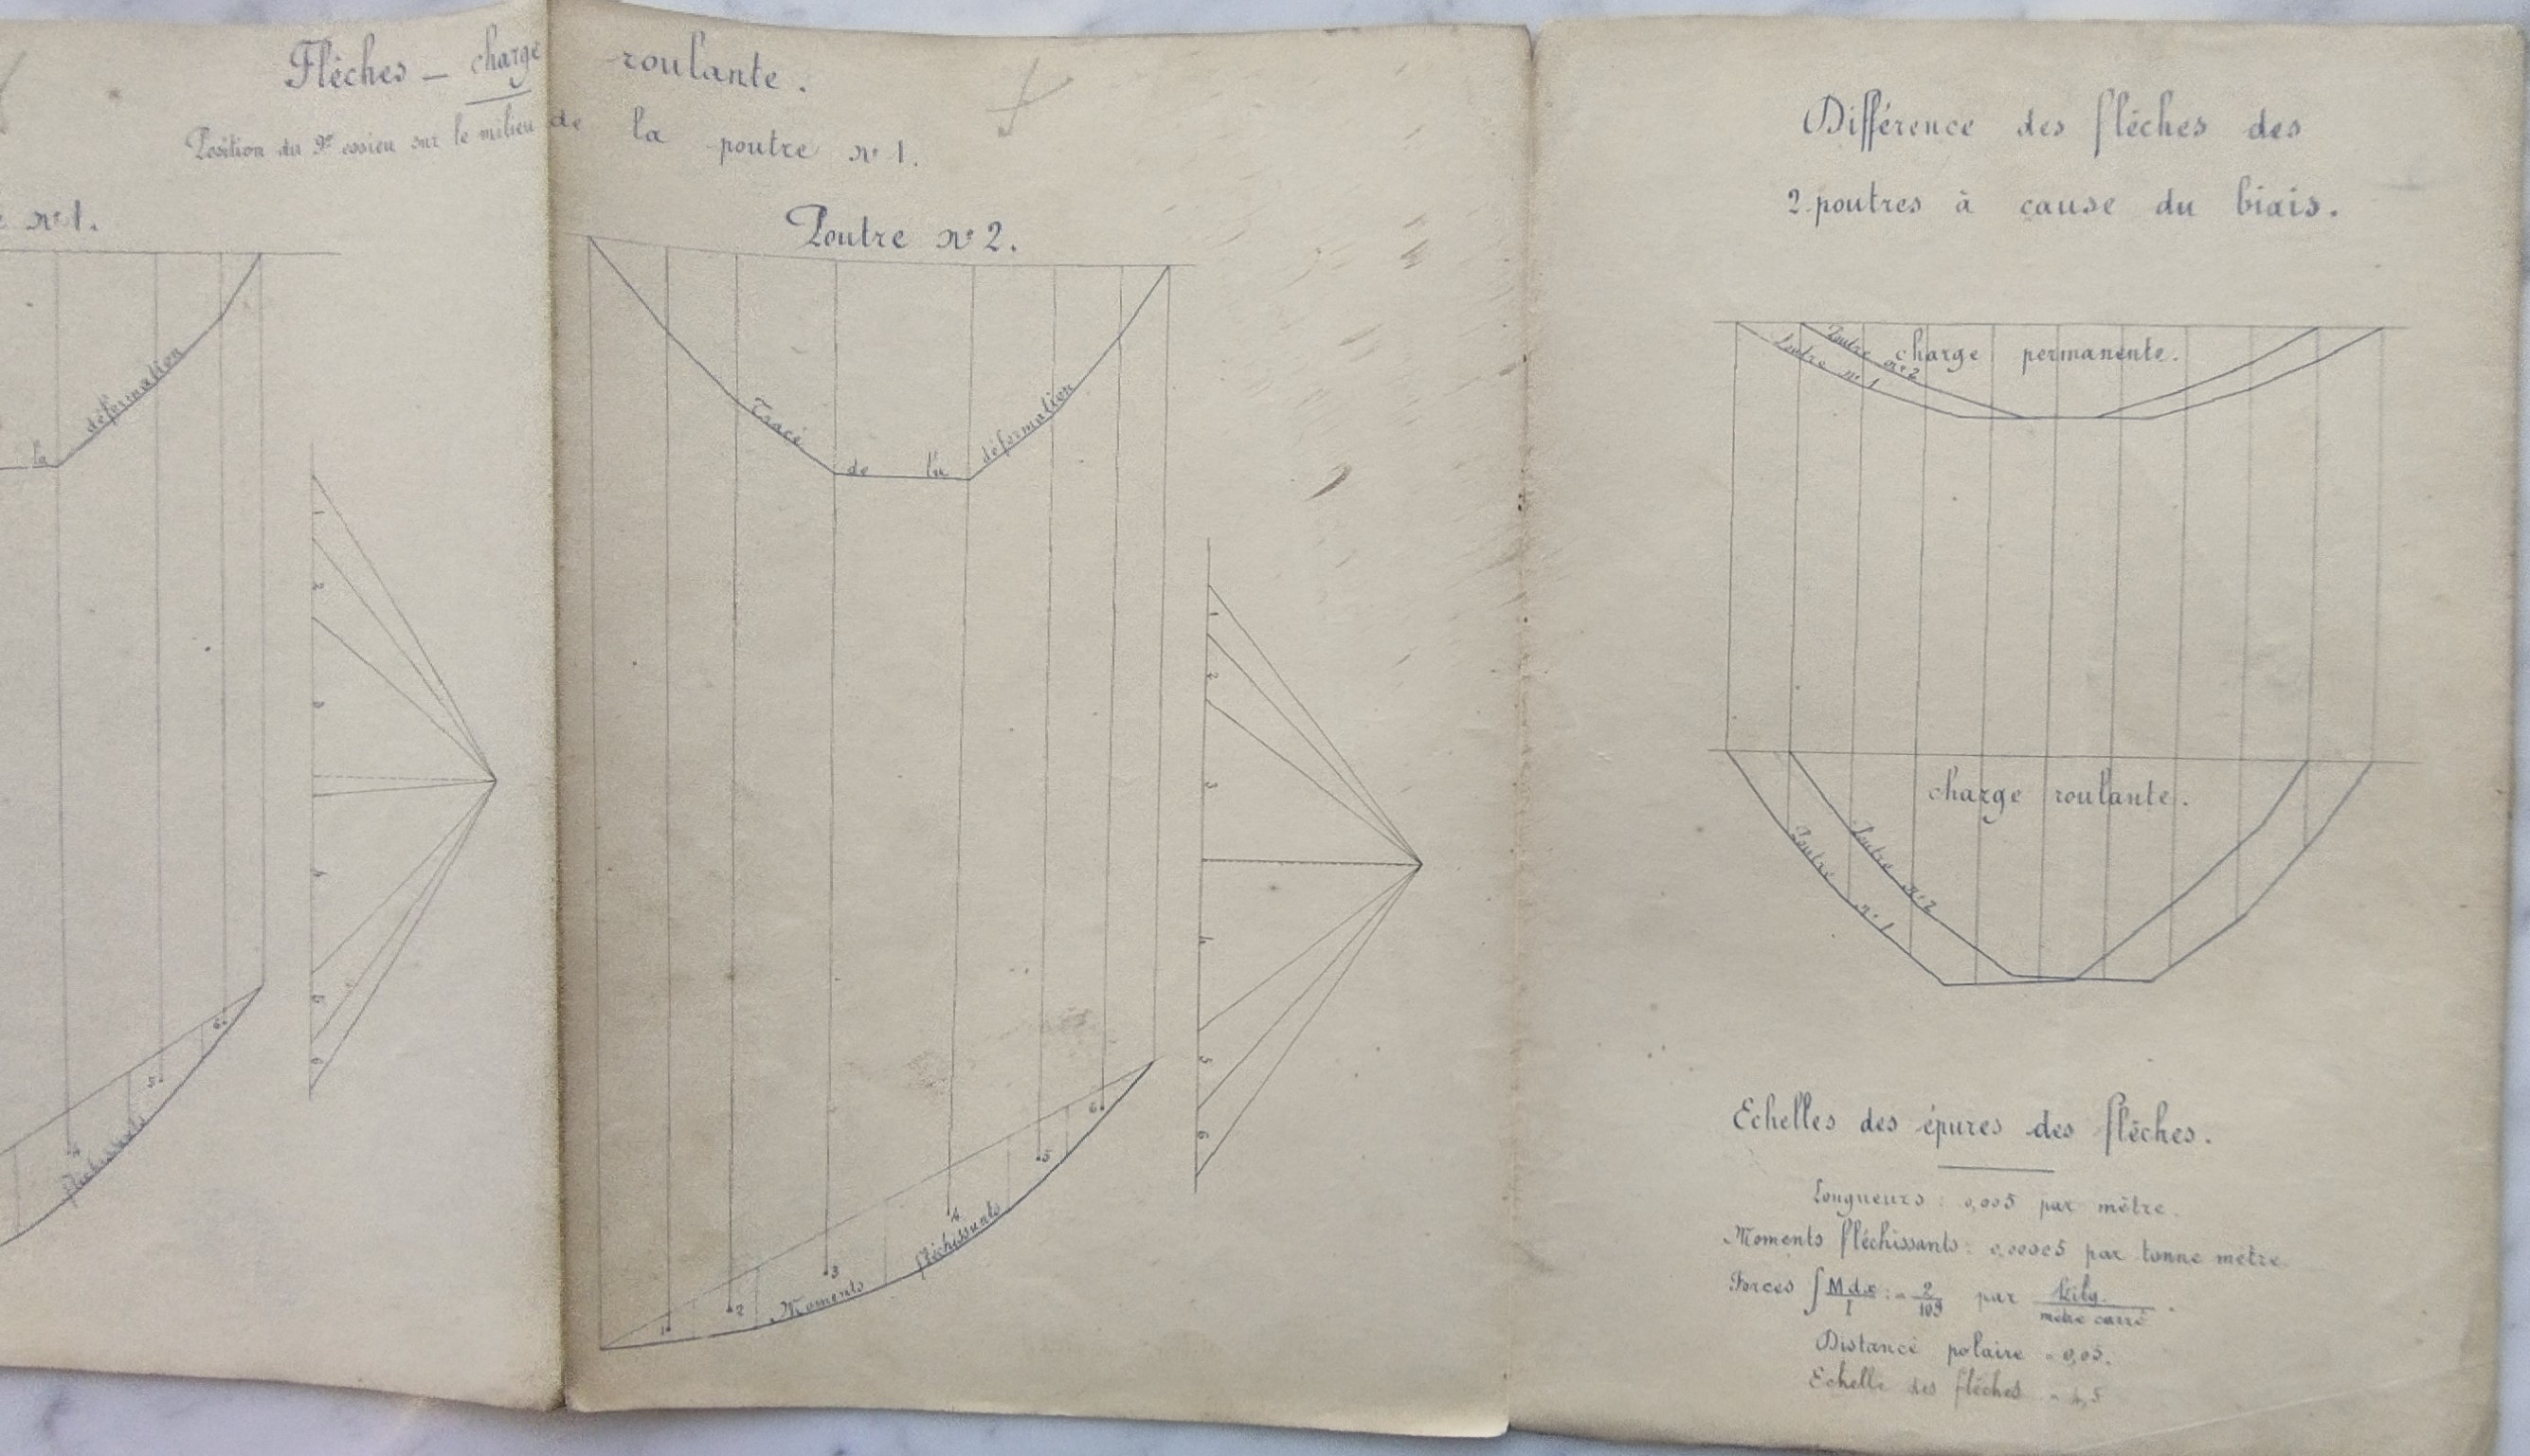 Flèches - charge roulante.
Position du 9e essieu sur le milieu de la poutre no 1.
no 1.
la déformation
1
2
3
4
5
6
4
5
6
fléchissants
Poutre no 2.
Tracé de la déformation
1
2
3
4
5
6
1
2
3
4
5
6
Moments fléchissants
Différence des flèches des
2 poutres à cause du biais.
Poutre no 2
Poutre no 1
charge permanente.
charge roulante.
Poutre no 1
Poutre no 2
Echelles des épures des flèches.
Longueurs : 0,005 par mètre.
Moments fléchissants : 0,00005 par tonne mètre.
Forces ∫ M dx / I : = 2 / 10⁹ par kilg. / mètre carré.
Distance polaire = 0,05.
Echelle des flèches = 4,5